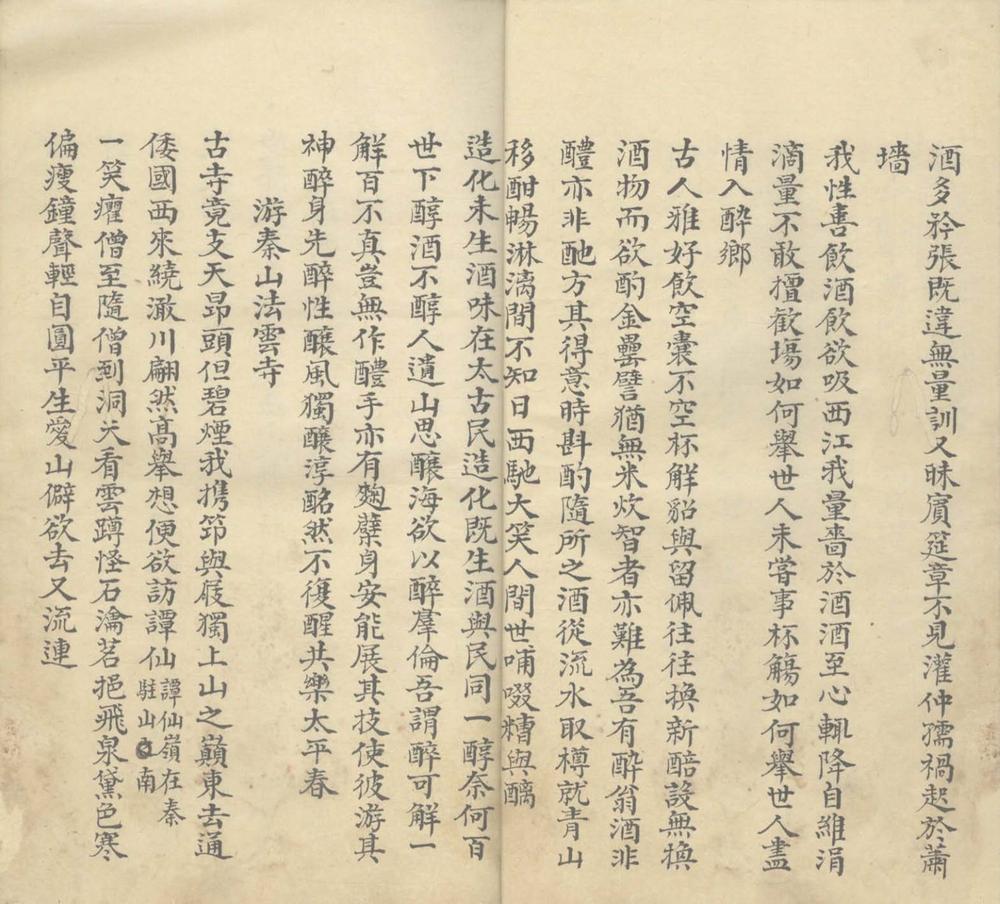 酒多矜張既違無量訓又昧賓筵章不見灌仲孺禍起於蕭
墻
我性善飲酒飲欲吸西江我量嗇於酒酒至心輒降自維涓
滴量不敢擅歡場如何舉世人未嘗事杯觴如何舉世人盡
情入醉鄉
古人雅好飲空囊不空杯解貂與留佩往往換新醅設無換
酒物而欲酌金罍譬猶無米炊智者亦難為吾有醉翁酒非
醴亦非酏方其得意時斟酌隨所之酒從流水取樽就青山
移酣暢淋漓間不知日西馳大笑人間世哺啜糟與醨
造化未生酒味在太古民造化既生酒與民同一醇奈何百
世下醇酒不醇人遺山思釀海欲以醉羣倫吾謂醉可解一
解百不真豈無作醴手亦有麴糵身安能展其技使彼游其
神醉身先醉性釀風獨釀淳酩然不復醒共樂太平春
游秦山法雲寺
古寺竟支天昂頭但碧煙我携笻與屐獨上山之巔東去通
倭國西來繞澉川翩然高舉想便欲訪譚仙譚仙嶺在秦駐山南
一笑癯僧至隨僧到洞天看雲蹲怪石瀹茗挹飛泉黛色寒
偏瘦鐘聲輕自圓平生愛山僻欲去又流連